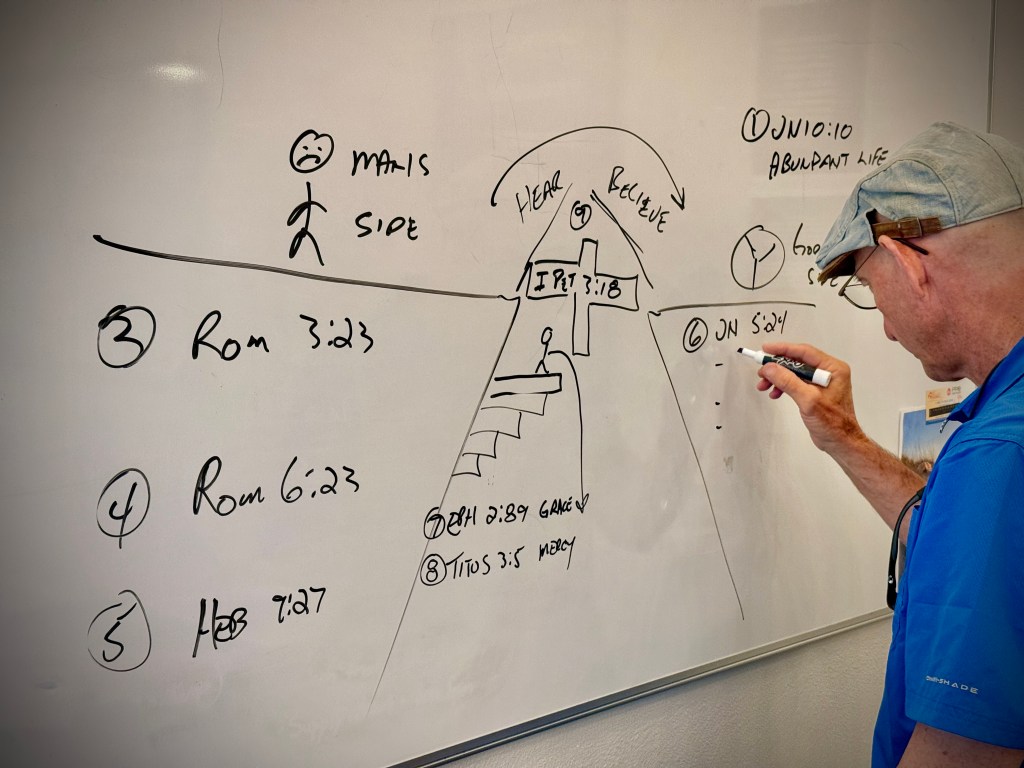 MAN'S
SIDE
3 Rom 3:23
4 Rom 6:23
5 HEB 9:27
HEAR
BELIEVE
9
I PET 3:18
7 EPH 2:89 GRACE
8 TITUS 3:5 MERCY
1 JN 10:10
ABUNDANT LIFE
6 JN 5:24
-
-
-